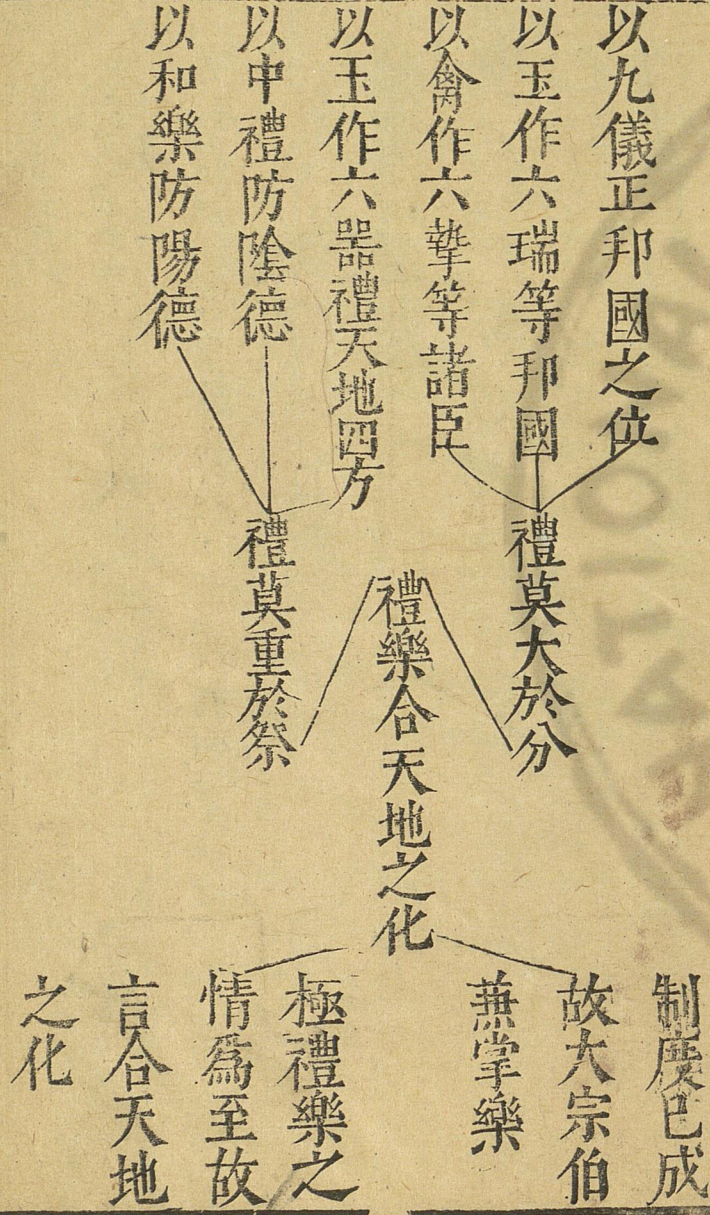 以九儀正邦國之位
以玉作六瑞等邦國
以禽作六摯等諸臣
以玉作六器禮天地四方
以中禮防陰德
以和樂防陽德
禮莫大於分
禮莫重於祭
禮樂合天地之化
制度已成
故大宗伯
蕪掌樂
極禮樂之
情爲至故
言合天地
之化